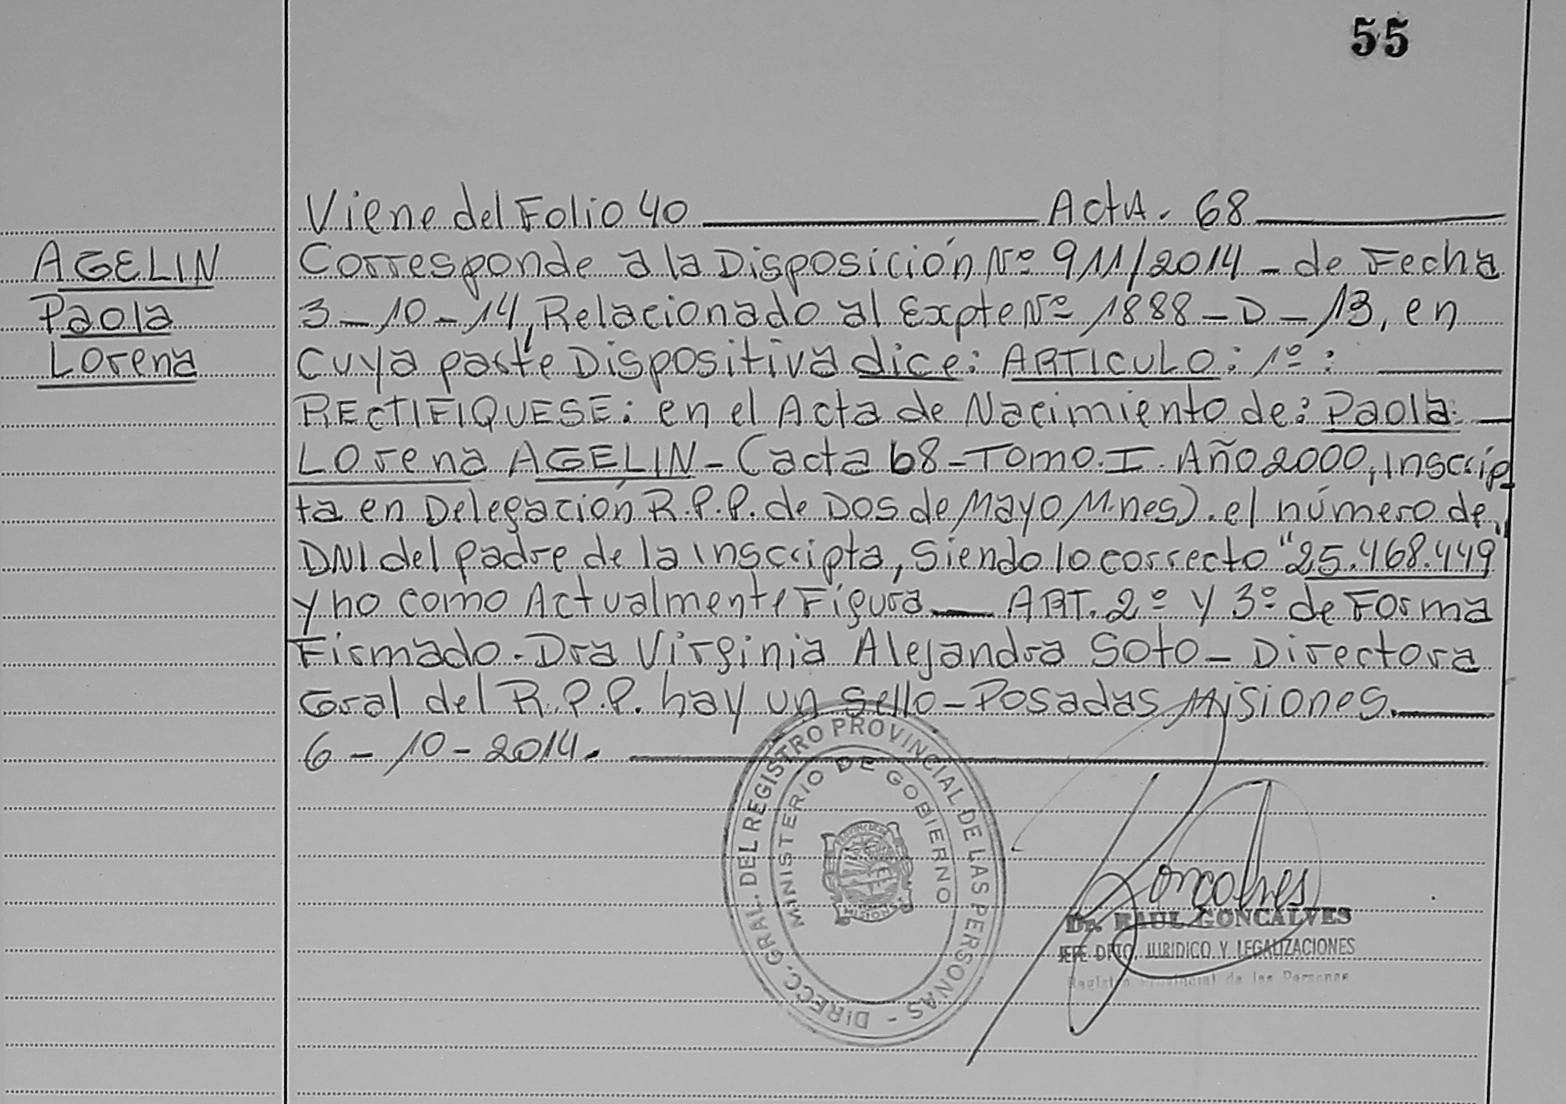 55
Viene del Folio 40 Acta. 68
AGELIN
Paola
Lorena
Corresponde a la Disposición Nº 911/2014 - de Fecha
3-10-14, Relacionado al Expte Nº 1888-D-13, en
cuya parte Dispositiva dice: ARTICULO: 1º:
RECTIFIQUESE: en el Acta de Nacimiento de: Paola
Lorena AGELIN - (acta 68 - Tomo. I. Año 2000, inscrip
ta en Delegación R.P.P. de Dos de Mayo Mnes). el número de
DNI del padre de la inscripta, siendo lo correcto "25.468.449"
y no como Actualmente Figura — ART. 2º y 3º de Forma
Firmado. Dra Virginia Alejandra Soto - Directora
Gral del R.P.P. hay un sello - Posadas Misiones.
6-10-2014.
DIRECC. GRAL. DEL REGISTRO PROVINCIAL DE LAS PERSONAS -
MINISTERIO DE GOBIERNO
Goncalves
Dr. RAUL GONCALVES
JEFE DPTO. JURIDICO Y LEGALIZACIONES
Registro Provincial de las Personas